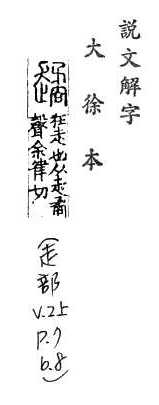 説文解字
大徐本
𧽻
狂走也从走矞
聲余律切
(走部
v.2上
p.7
b.8)